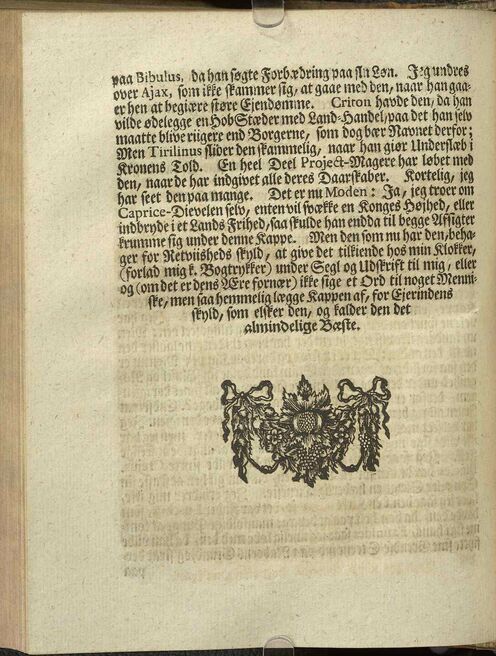 paa Bibulus, da han søgte Forbædring paa sin Løn. Jeg undres
over Ajax, som ikke skammer sig, at gaae med den, naar han gaa-
er hen at begiære større Ejendomme. Criton havde den, da han
vilde ødelegge en Hob Stæder med Land-Handel, paa det han selv
maatte blive riigere end Borgerne, som dog bær Navnet derfor;
Men Tirilinus slider den skammelig, naar han giør Underslæb i
Kronens Told. En heel Deel Project-Magere har løbet med
den, naar de har indgivet alle deres Daarskaber. Kortelig, jeg
har seet den paa mange. Det er nu Moden: Ja, jeg troer om
Caprice-Dievelen selv, enten vil svække en Konges Højhed, eller
indbryde i et Lands Frihed, saa skulde han endda til begge Affigter
krumme sig under denne Kappe. Men den som nu har den, beha-
ger for Retviisheds skyld, at give det tilkiende hos min Klokker,
(forlad mig k. Bogtrykker) under Segl og Udskrift til mig, eller
og (om det er dens Ære fornær) ikke sige et Ord til noget Menni-
ske, men saa hemmelig lægge Kappen af, for Ejerindens
skyld, som elsker den, og kalder den det
almindelige Bæste.